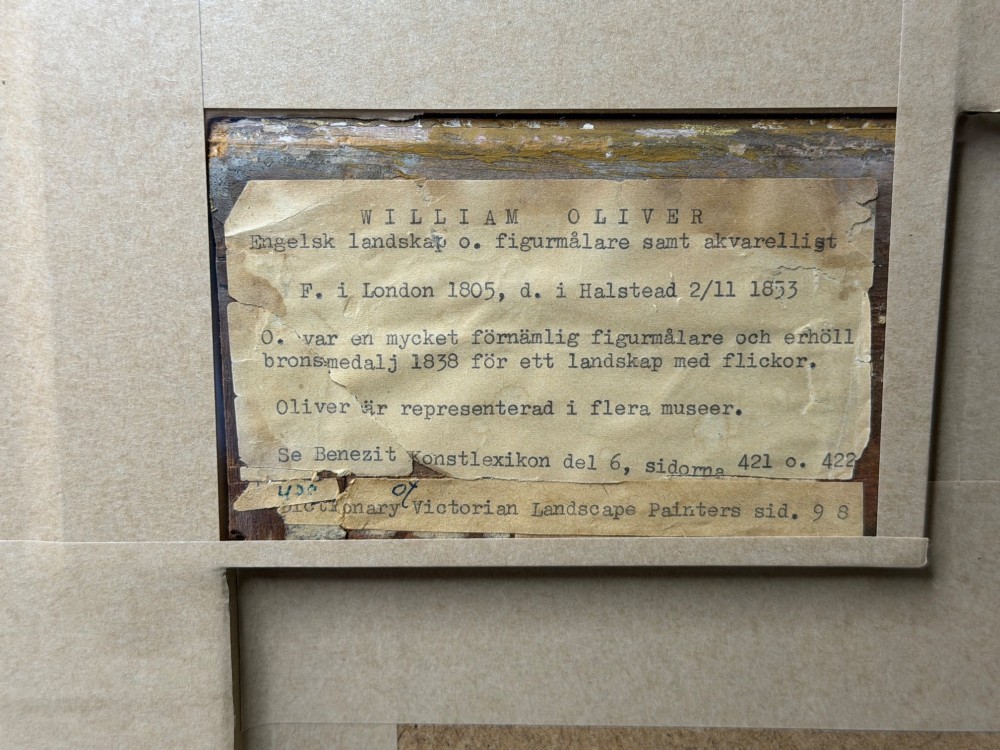 WILLIAM OLIVER
Engelsk landskap o. figurmålare samt akvarellist
F. i London 1805, d. i Halstead 2/11 1853
O. var en mycket förnämlig figurmålare och erhöll
bronsmedalj 1838 för ett landskap med flickor.
Oliver är representerad i flera museer.
Se Benezit Konstlexikon del 6, sidorna 421 o. 422
Dictionary of Victorian Landscape Painters sid. 9 8